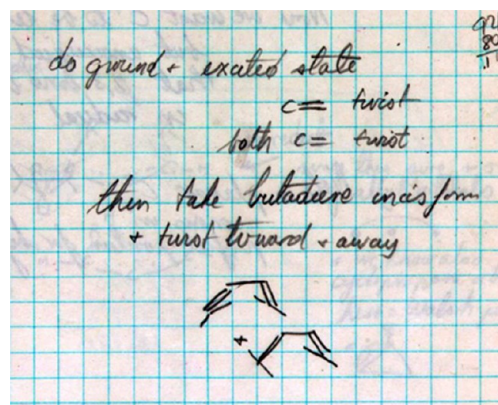 do ground + exated state
c= twist
both c= twist
then take butadiene in cis form
+ twist toward + away
+